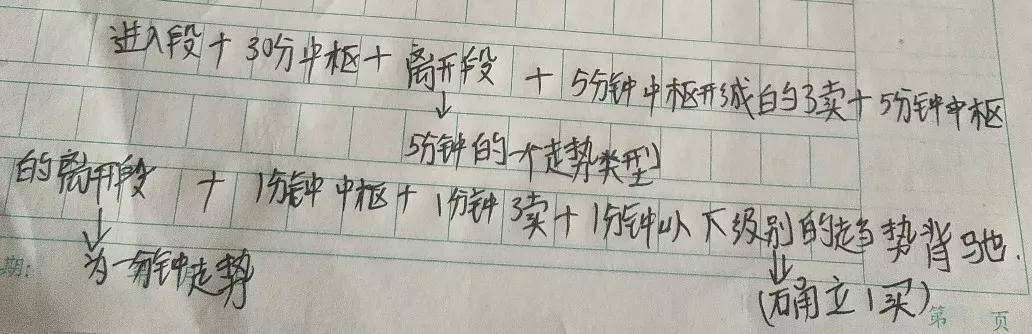 进入段+30分中枢+离开段+5分钟中枢形成的3卖+5分钟中枢
↓
5分钟的一个走势类型
的离开段+1分钟中枢+1分钟3卖+1分钟以下级别的趋势背驰.
↓
↓
为一分钟走势
(确立1买)
期:
第 页